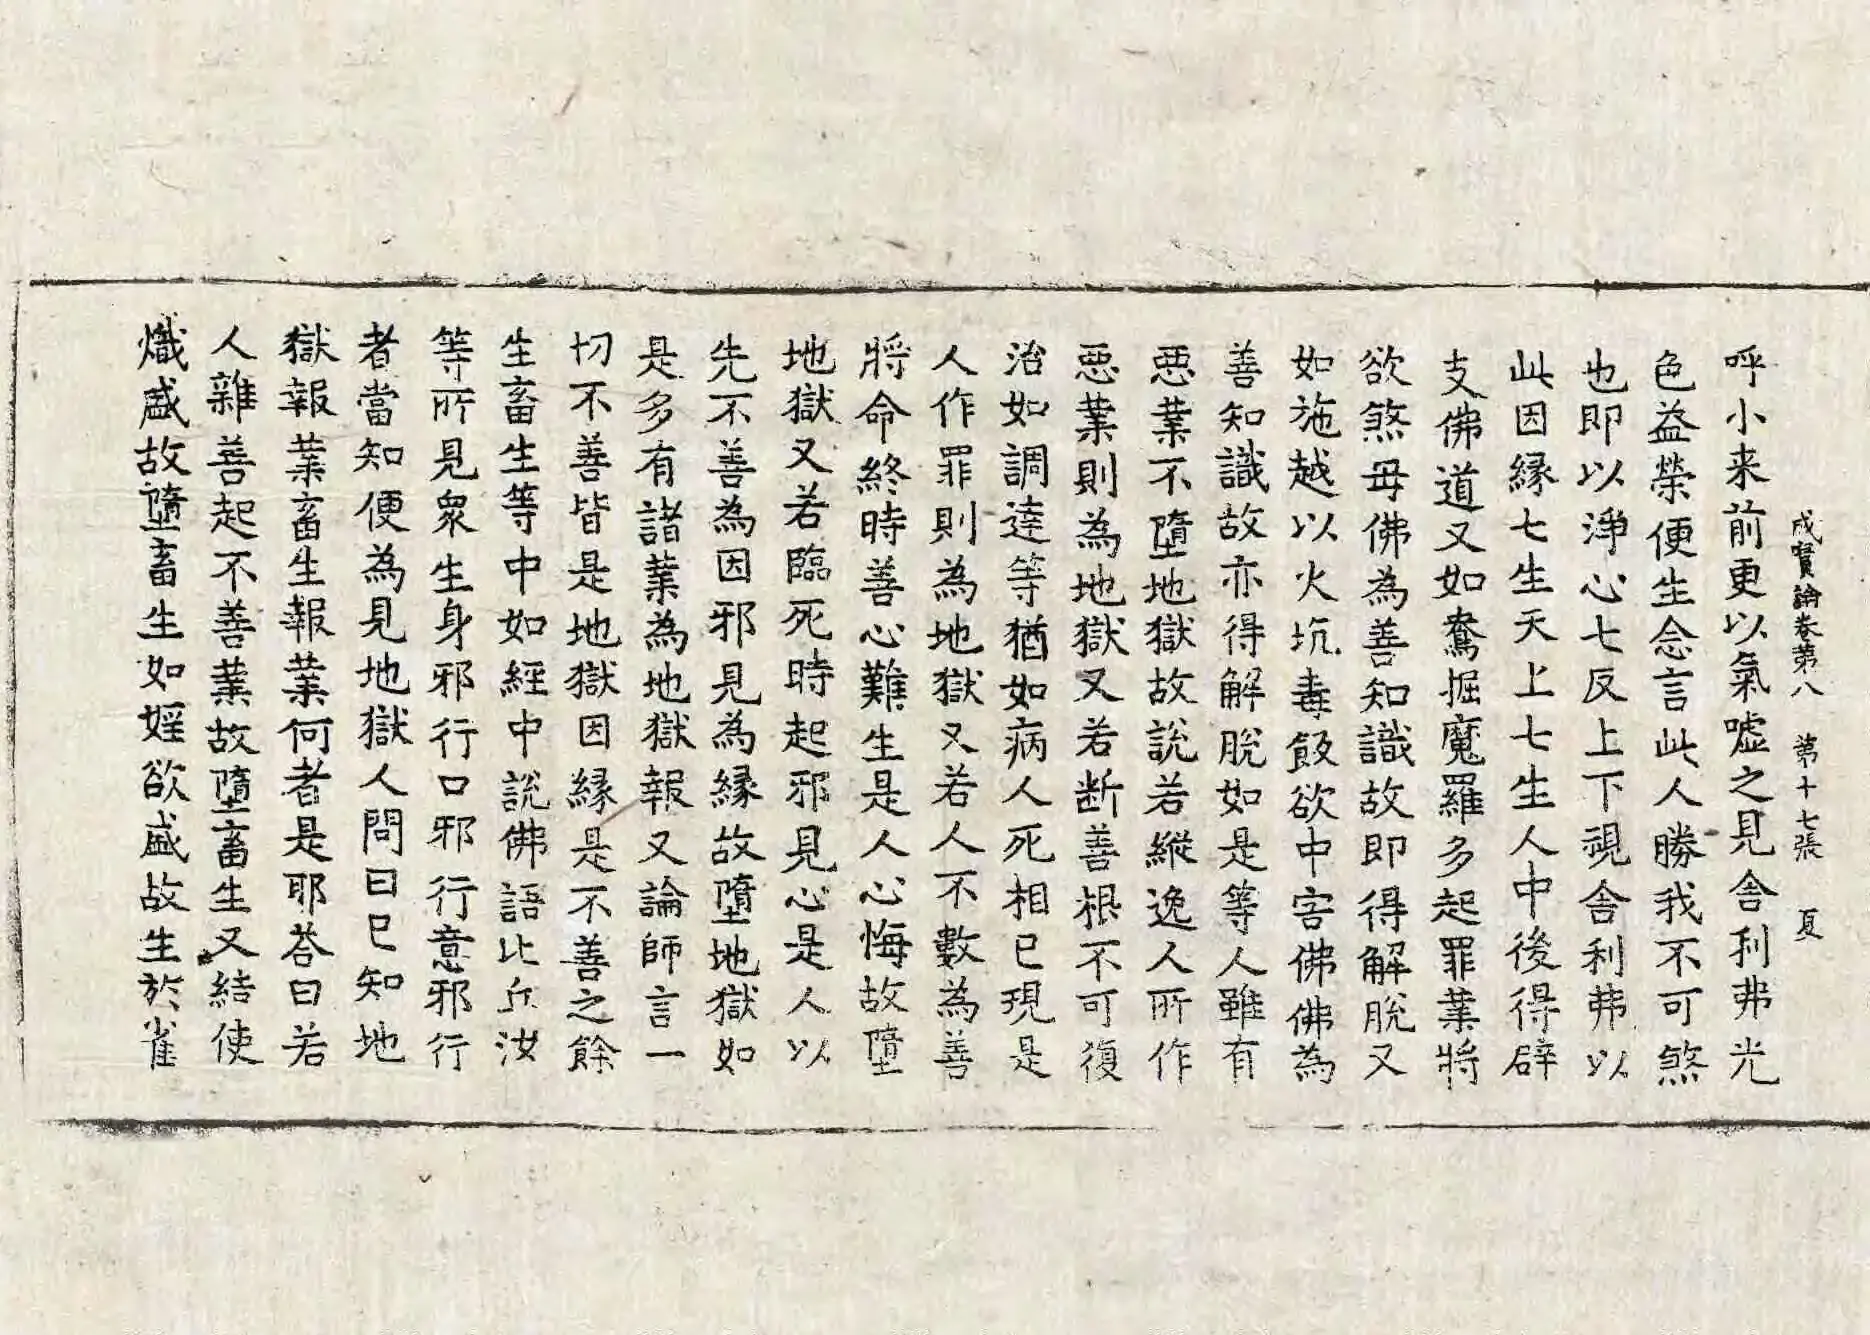 成實論卷第八　第十七張　夏
呼小来前更以氣嘘之見舎利弗光
色益榮便生念言此人勝我不可煞
也即以淨心七反上下視舎利弗以
此因縁七生天上七生人中後得辟
支佛道又如鴦掘魔羅多起罪業將
欲煞母佛為善知識故即得解脫又
如施越以火坑毒飯欲中害佛佛為
善知識故亦得解脫如是等人雖有
惡業不墮地獄故說若縱逸人所作
惡業則為地獄又若断善根不可復
治如調達等猶如病人死相已現是
人作罪則為地獄又若人不數為善
將命終時善心難生是人心悔故墮
地獄又若臨死時起邪見心是人以
先不善為因邪見為縁故墮地獄如
是多有諸業為地獄報又論師言一
切不善皆是地獄因縁是不善之餘
生畜生等中如經中說佛語比丘汝
等所見衆生身邪行口邪行意邪行
者當知便為見地獄人問曰已知地
獄報業畜生報業何者是耶荅曰若
人雜善起不善業故墮畜生又結使
熾盛故墮畜生如婬欲盛故生於雀